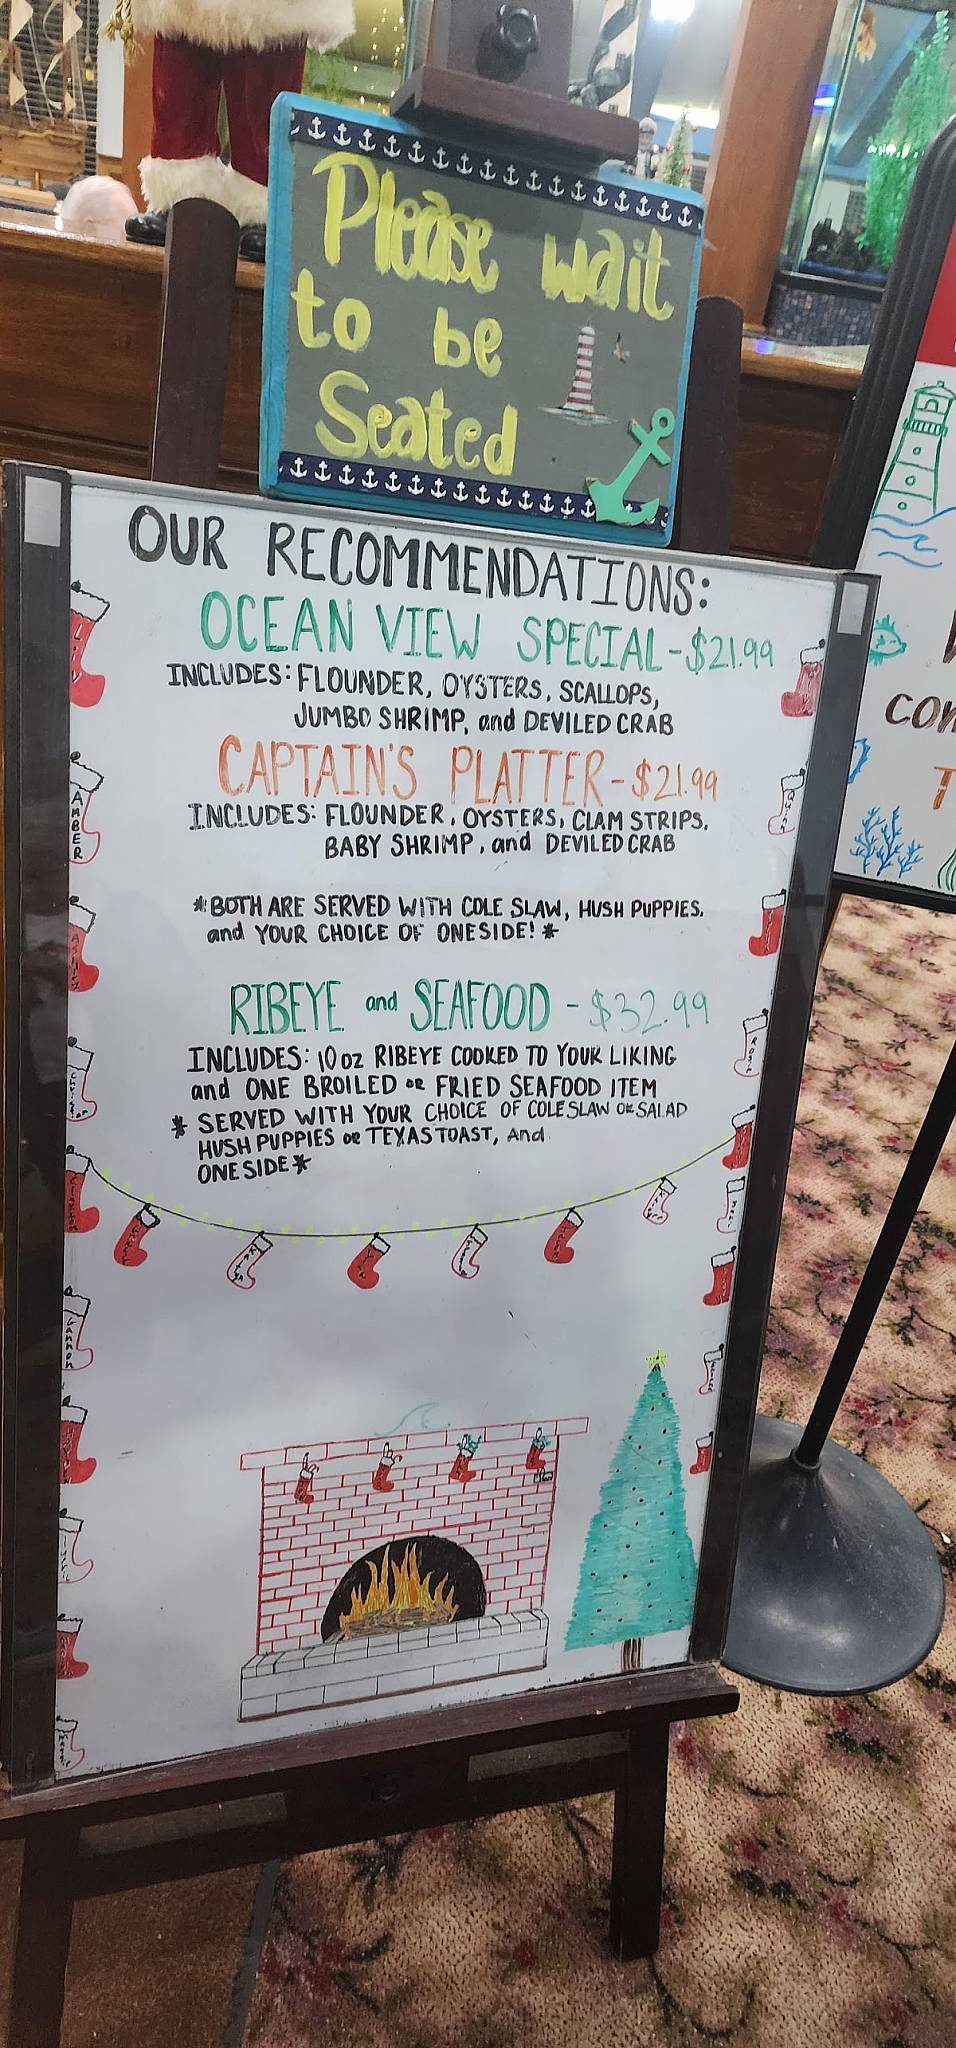 Please wait
to be
Seated
OUR RECOMMENDATIONS:
OCEAN VIEW SPECIAL-$21.99
INCLUDES: FLOUNDER, OYSTERS, SCALLOPS,
JUMBO SHRIMP, and DEVILED CRAB
CAPTAIN'S PLATTER-$21.99
INCLUDES: FLOUNDER, OYSTERS, CLAM STRIPS,
BABY SHRIMP, and DEVILED CRAB
*BOTH ARE SERVED WITH COLE SLAW, HUSH PUPPIES,
and YOUR CHOICE OF ONE SIDE!*
RIBEYE and SEAFOOD - $32.99
INCLUDES: 10 oz RIBEYE COOKED TO YOUR LIKING
and ONE BROILED or FRIED SEAFOOD ITEM
* SERVED WITH YOUR CHOICE OF COLE SLAW or SALAD
HUSH PUPPIES or TEXAS TOAST, And
ONE SIDE*
AMBER
GANNON
CON
T